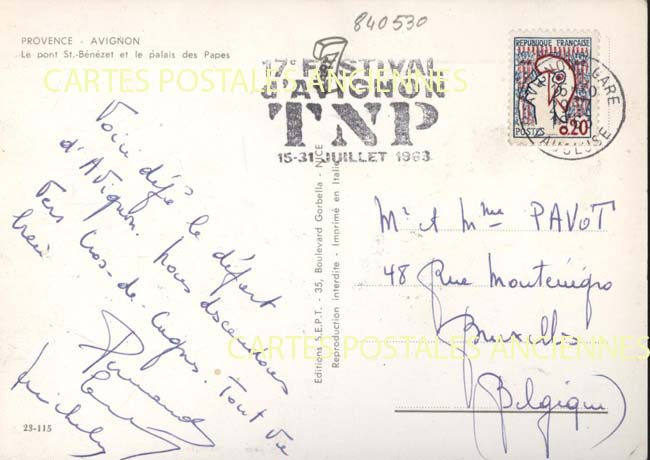 840530
PROVENCE - AVIGNON
Le pont St.-Bénézet et le palais des Papes
17e FESTIVAL
d'AVIGNON
TNP
15-31 JUILLET 1963
REPUBLIQUE FRANÇAISE
POSTES 0,20
GARE
VAUCLUSE
CARTES POSTALES ANCIENNES
Voici déjà le départ
d'Avignon. Nous descendons
vers Cros-de-Cagnes. Tout va
bien
Fernand
Micheline
23-115
Editions S.E.P.T. - 35, Boulevard Gorbella - NICE
Reproduction interdite - Imprimé en Italie
Mr et Mme PAVOT
48 Rue Monténégro
Bruxelles
(Belgique)
CARTES POSTALES ANCIENNES